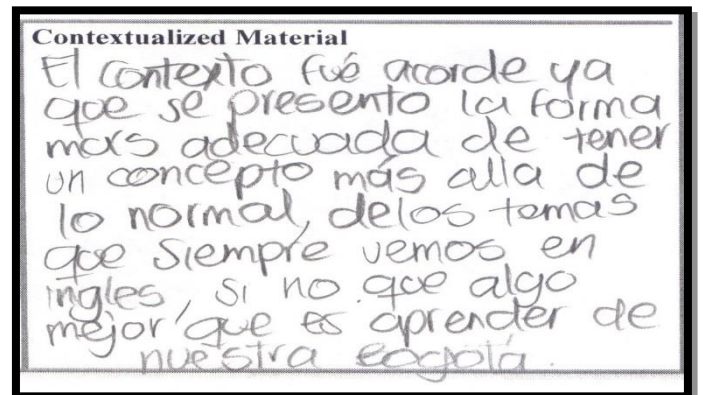 Contextualized Material
El contexto fué acorde ya
que se presento la forma
mas adecuada de tener
un concepto más alla de
lo normal, delos temas
que siempre vemos en
ingles, si no que algo
mejor que es aprender de
nuestra Bogotá.